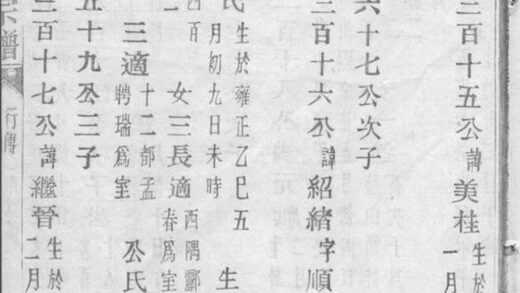 三百十五公諱美桂生於
一月
六十七公次子
三百十六公諱紹緒字順
氏生於雍正乙巳五
月初九日未時生
四百
一女三長適西隅酈
春爲室
三適十二都孟
聘瑞爲室公氏
五十九公三子
三百十七公諱繼晉生於
二月
宗譜
行傳